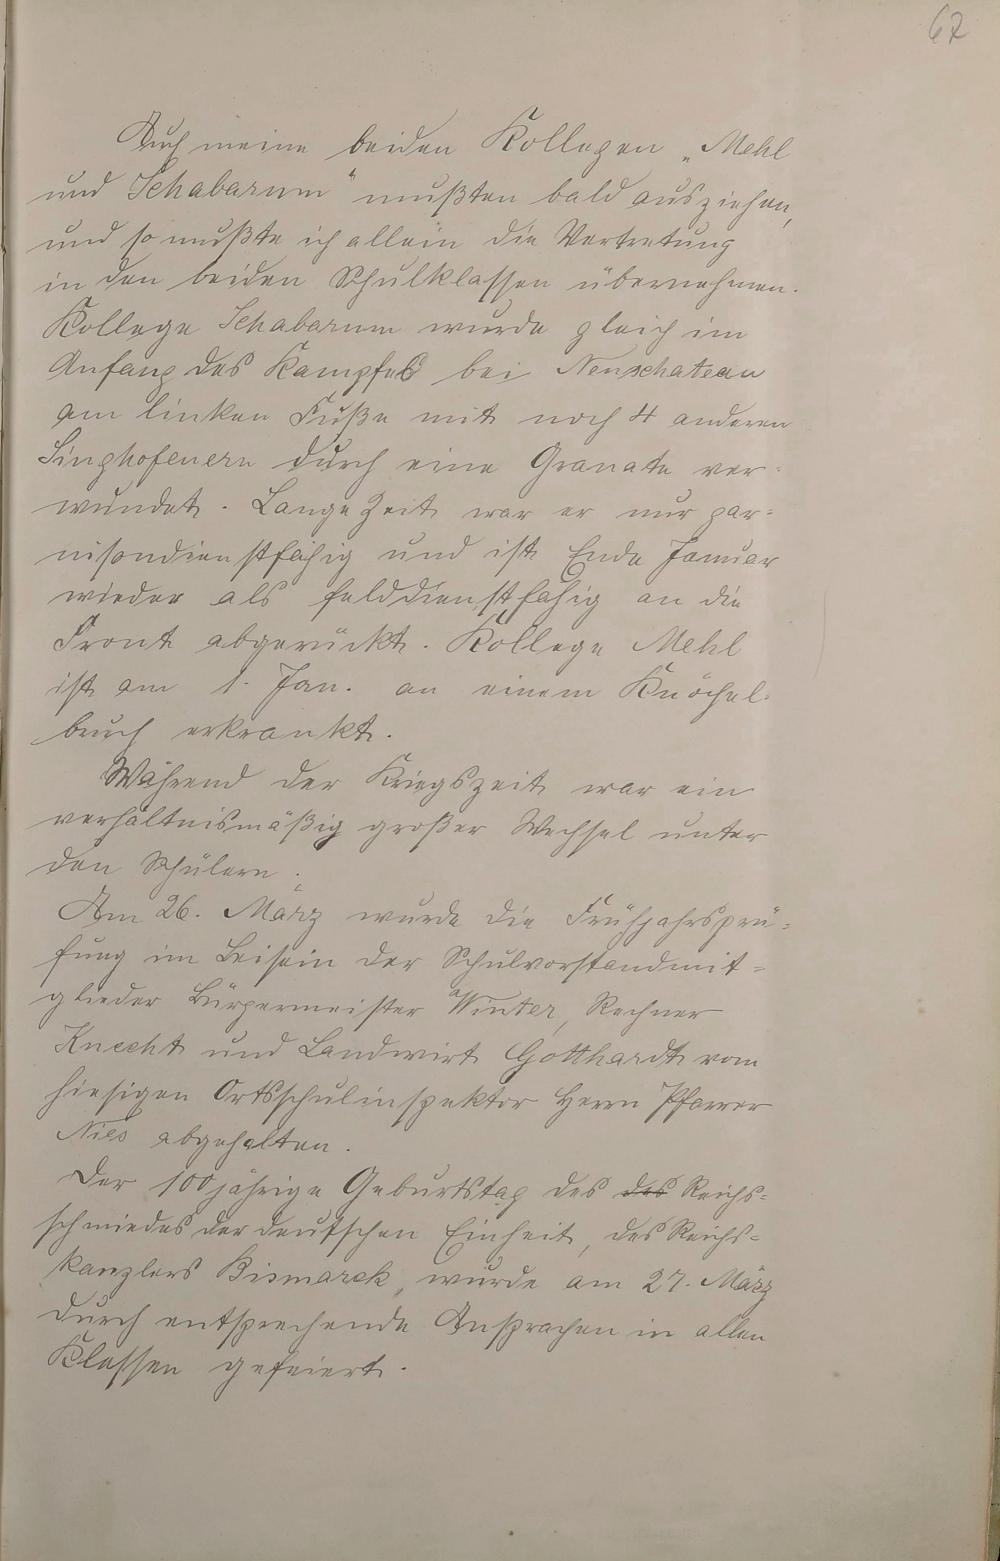 67
Auch meine beiden Kollegen „Mehl
und Schabarum“ mußten bald ausziehen,
und so mußte ich allein die Vertretung
in den beiden Schulklassen übernehmen.
Kollege Schabarum wurde gleich im
Anfang des Kampfes bei Neuschateau
am linken Fuße mit noch 4 anderen
Singhofenern durch eine Granate ver-
wundet. Lange Zeit war er nur gar-
nisondienstfähig und ist Ende Januar
wieder als felddienstfähig an die
Front abgerückt. Kollege Mehl
ist am 1. Jan. an einem Knöchel-
bruch erkrankt.
Während der Kriegszeit war ein
verhältnismäßig großer Wechsel unter
den Schülern.
Am 26. März wurde die Frühjahrsprü-
fung im Beisein der Schulvorstandmit-
glieder Bürgermeister Winter, Rechner
Knecht und Landwirt Gotthardt vom
hiesigen Ortsschulinspektor Herrn Pfarrer
Nies abgehalten.
Der 100jährige Geburtstag des des Reichs-
schmiedes der deutschen Einheit, des Reichs-
kanzlers Bismarck, wurde am 27. März
durch entsprechende Ansprachen in allen
Klassen gefeiert.